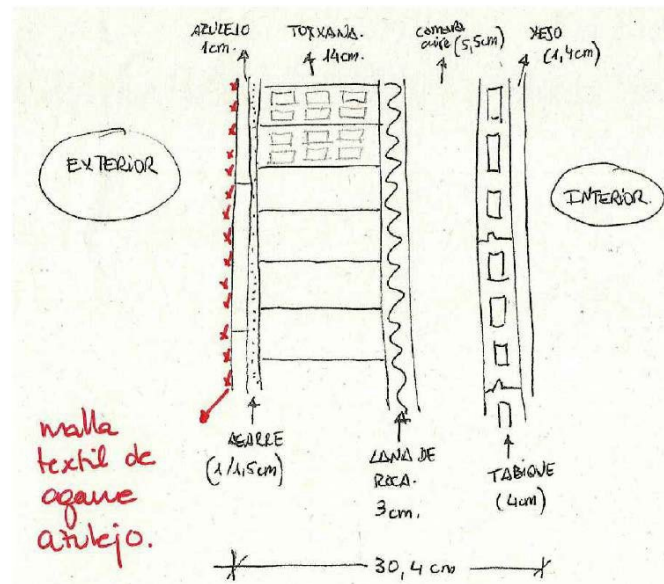 AZULEJO
1cm.
TOXXANA.
14cm.
camara
aire (5,5cm)
YEJO
(1,4cm)
EXTERIOR
INTERIOR.
malla
textil de
agarre
azulejo.
AGARRE
(1/1,5cm)
LANA DE
ROCA.
3cm.
TABIQUE
(4cm)
30,4cm